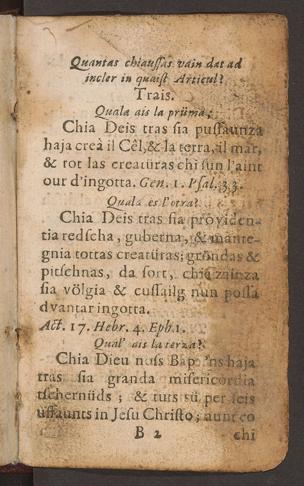 Quantas chiaussas vain dat ad
incler in quaist Articul?
Trais.
Quala ais la prüma?
Chia Deis tras sia pussaunza
haja creà il Cêl, & la terra, il mar,
& tot las creatüras chi sun l'aint
our d'ingotta. Gen. 1. Psal. 33.
Quala es l'otra?
Chia Deis tras sia providen-
tia redscha, guberna, & mante-
gnia tottas creatüras; gröndas &
pitschnas, da sort, chia zainza
sia völgia & cussailg nun possa
dvantar ingotta.
Act. 17. Hebr. 4. Eph. 1.
Qual' ais la terza?
Chia Dieu noss Bap 'ns haja
tras sia granda misericordia
tschernüds; & tuts sü per seis
uffaunts in Jesu Christo; aunt co
B 2 chi